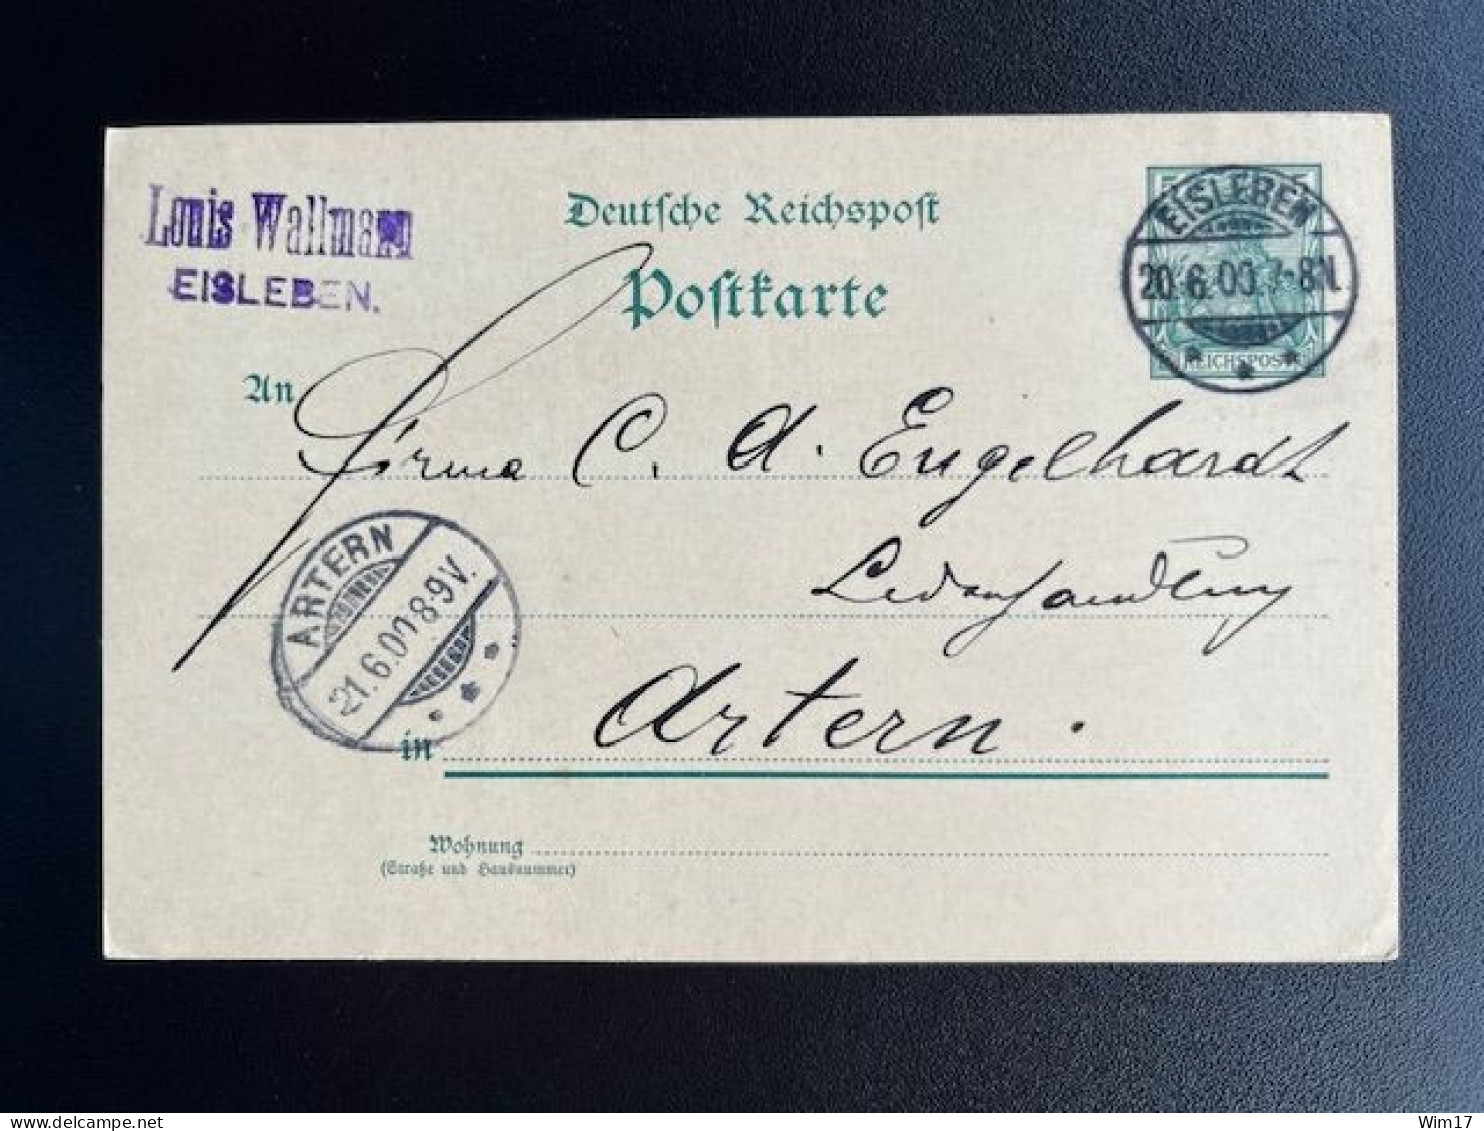 Louis Wallmann
EISLEBEN.
Deutsche Reichspost
Postkarte
5 5
EISLEBEN
20.6.00.7-8N.
REICHSPOST
An
Firma C. A. Engelhardt
Lederhandlung
ARTERN
21.6.00.8-9V.
in Artern.
Wohnung
(Straße und Hausnummer)
Wim17